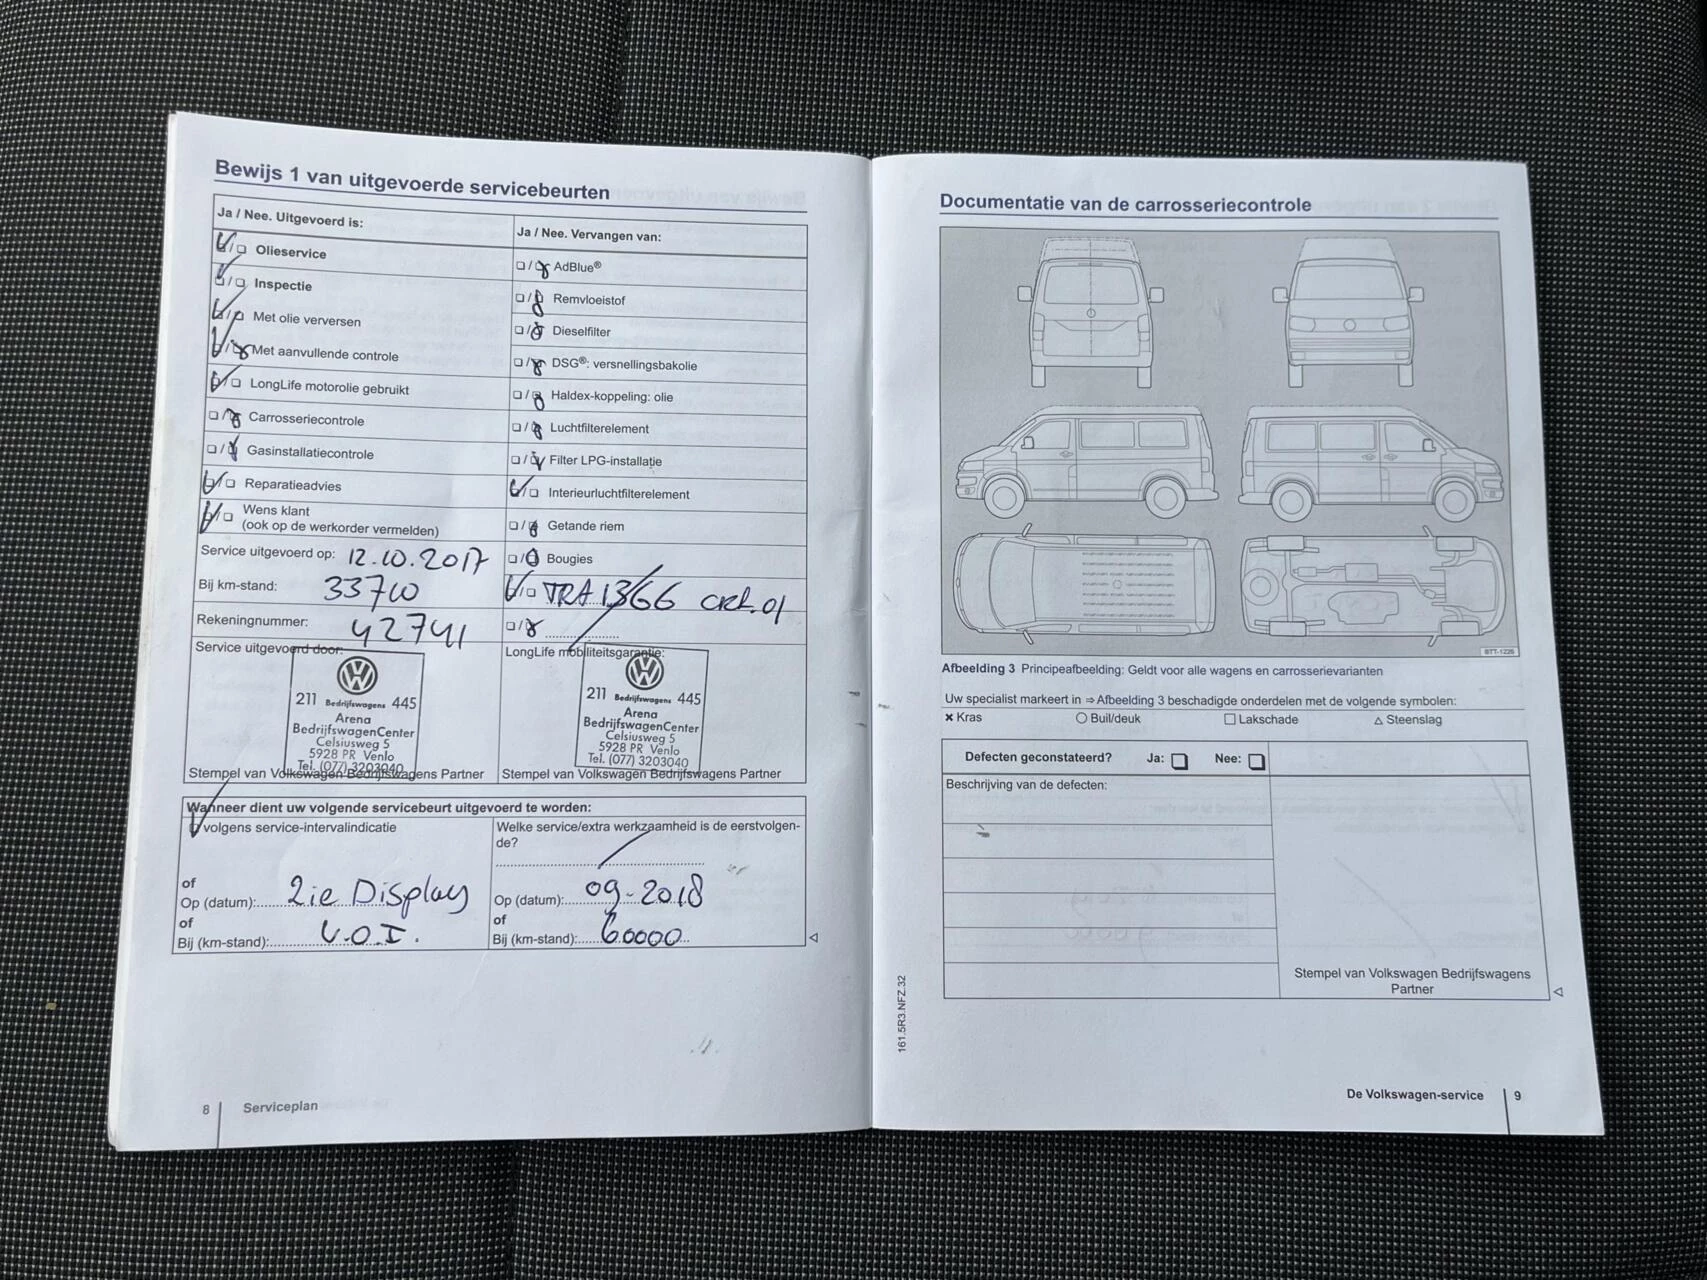 Bewijs 1 van uitgevoerde servicebeurten
Ja / Nee. Uitgevoerd is:
Olieservice
Inspectie
Met olie verversen
Met aanvullende controle
LongLife motorolie gebruikt
Carrosseriecontrole
Gasinstallatiecontrole
Reparatieadvies
Wens klant
(ook op de werkorder vermelden)
Ja / Nee. Vervangen van:
AdBlue®
Remvloeistof
Dieselfilter
DSG®: versnellingsbakolie
Haldex-koppeling: olie
Luchtfilterelement
Filter LPG-installatie
Interieurluchtfilterelement
Getande riem
Bougies
Service uitgevoerd op: 12.10.2017
Bij km-stand: 33710
Rekeningnummer: 42741
Service uitgevoerd door:
211 Bedrijfswagens 445
Arena
BedrijfswagenCenter
Celsiusweg 5
5928 PR Venlo
Tel. (077) 3203040
Stempel van Volkswagen Bedrijfswagens Partner
LongLife mobiliteitsgarantie:
211 Bedrijfswagens 445
Arena
BedrijfswagenCenter
Celsiusweg 5
5928 PR Venlo
Tel. (077) 3203040
Stempel van Volkswagen Bedrijfswagens Partner
Wanneer dient uw volgende servicebeurt uitgevoerd te worden:
volgens service-intervalindicatie
of
Op (datum): 2ie Display
of
Bij (km-stand): V.O.I.
Welke service/extra werkzaamheid is de eerstvolgen-
de?
Op (datum): 09-2018
of
Bij (km-stand): 60000
8 Serviceplan
Documentatie van de carrosseriecontrole
BTT-1226
Afbeelding 3 Principeafbeelding: Geldt voor alle wagens en carrosserievarianten
Uw specialist markeert in ⇒ Afbeelding 3 beschadigde onderdelen met de volgende symbolen:
× Kras ○ Buil/deuk □ Lakschade △ Steenslag
Defecten geconstateerd? Ja: Nee:
Beschrijving van de defecten:
Stempel van Volkswagen Bedrijfswagens
Partner
161.5R3.NFZ.32
De Volkswagen-service 9